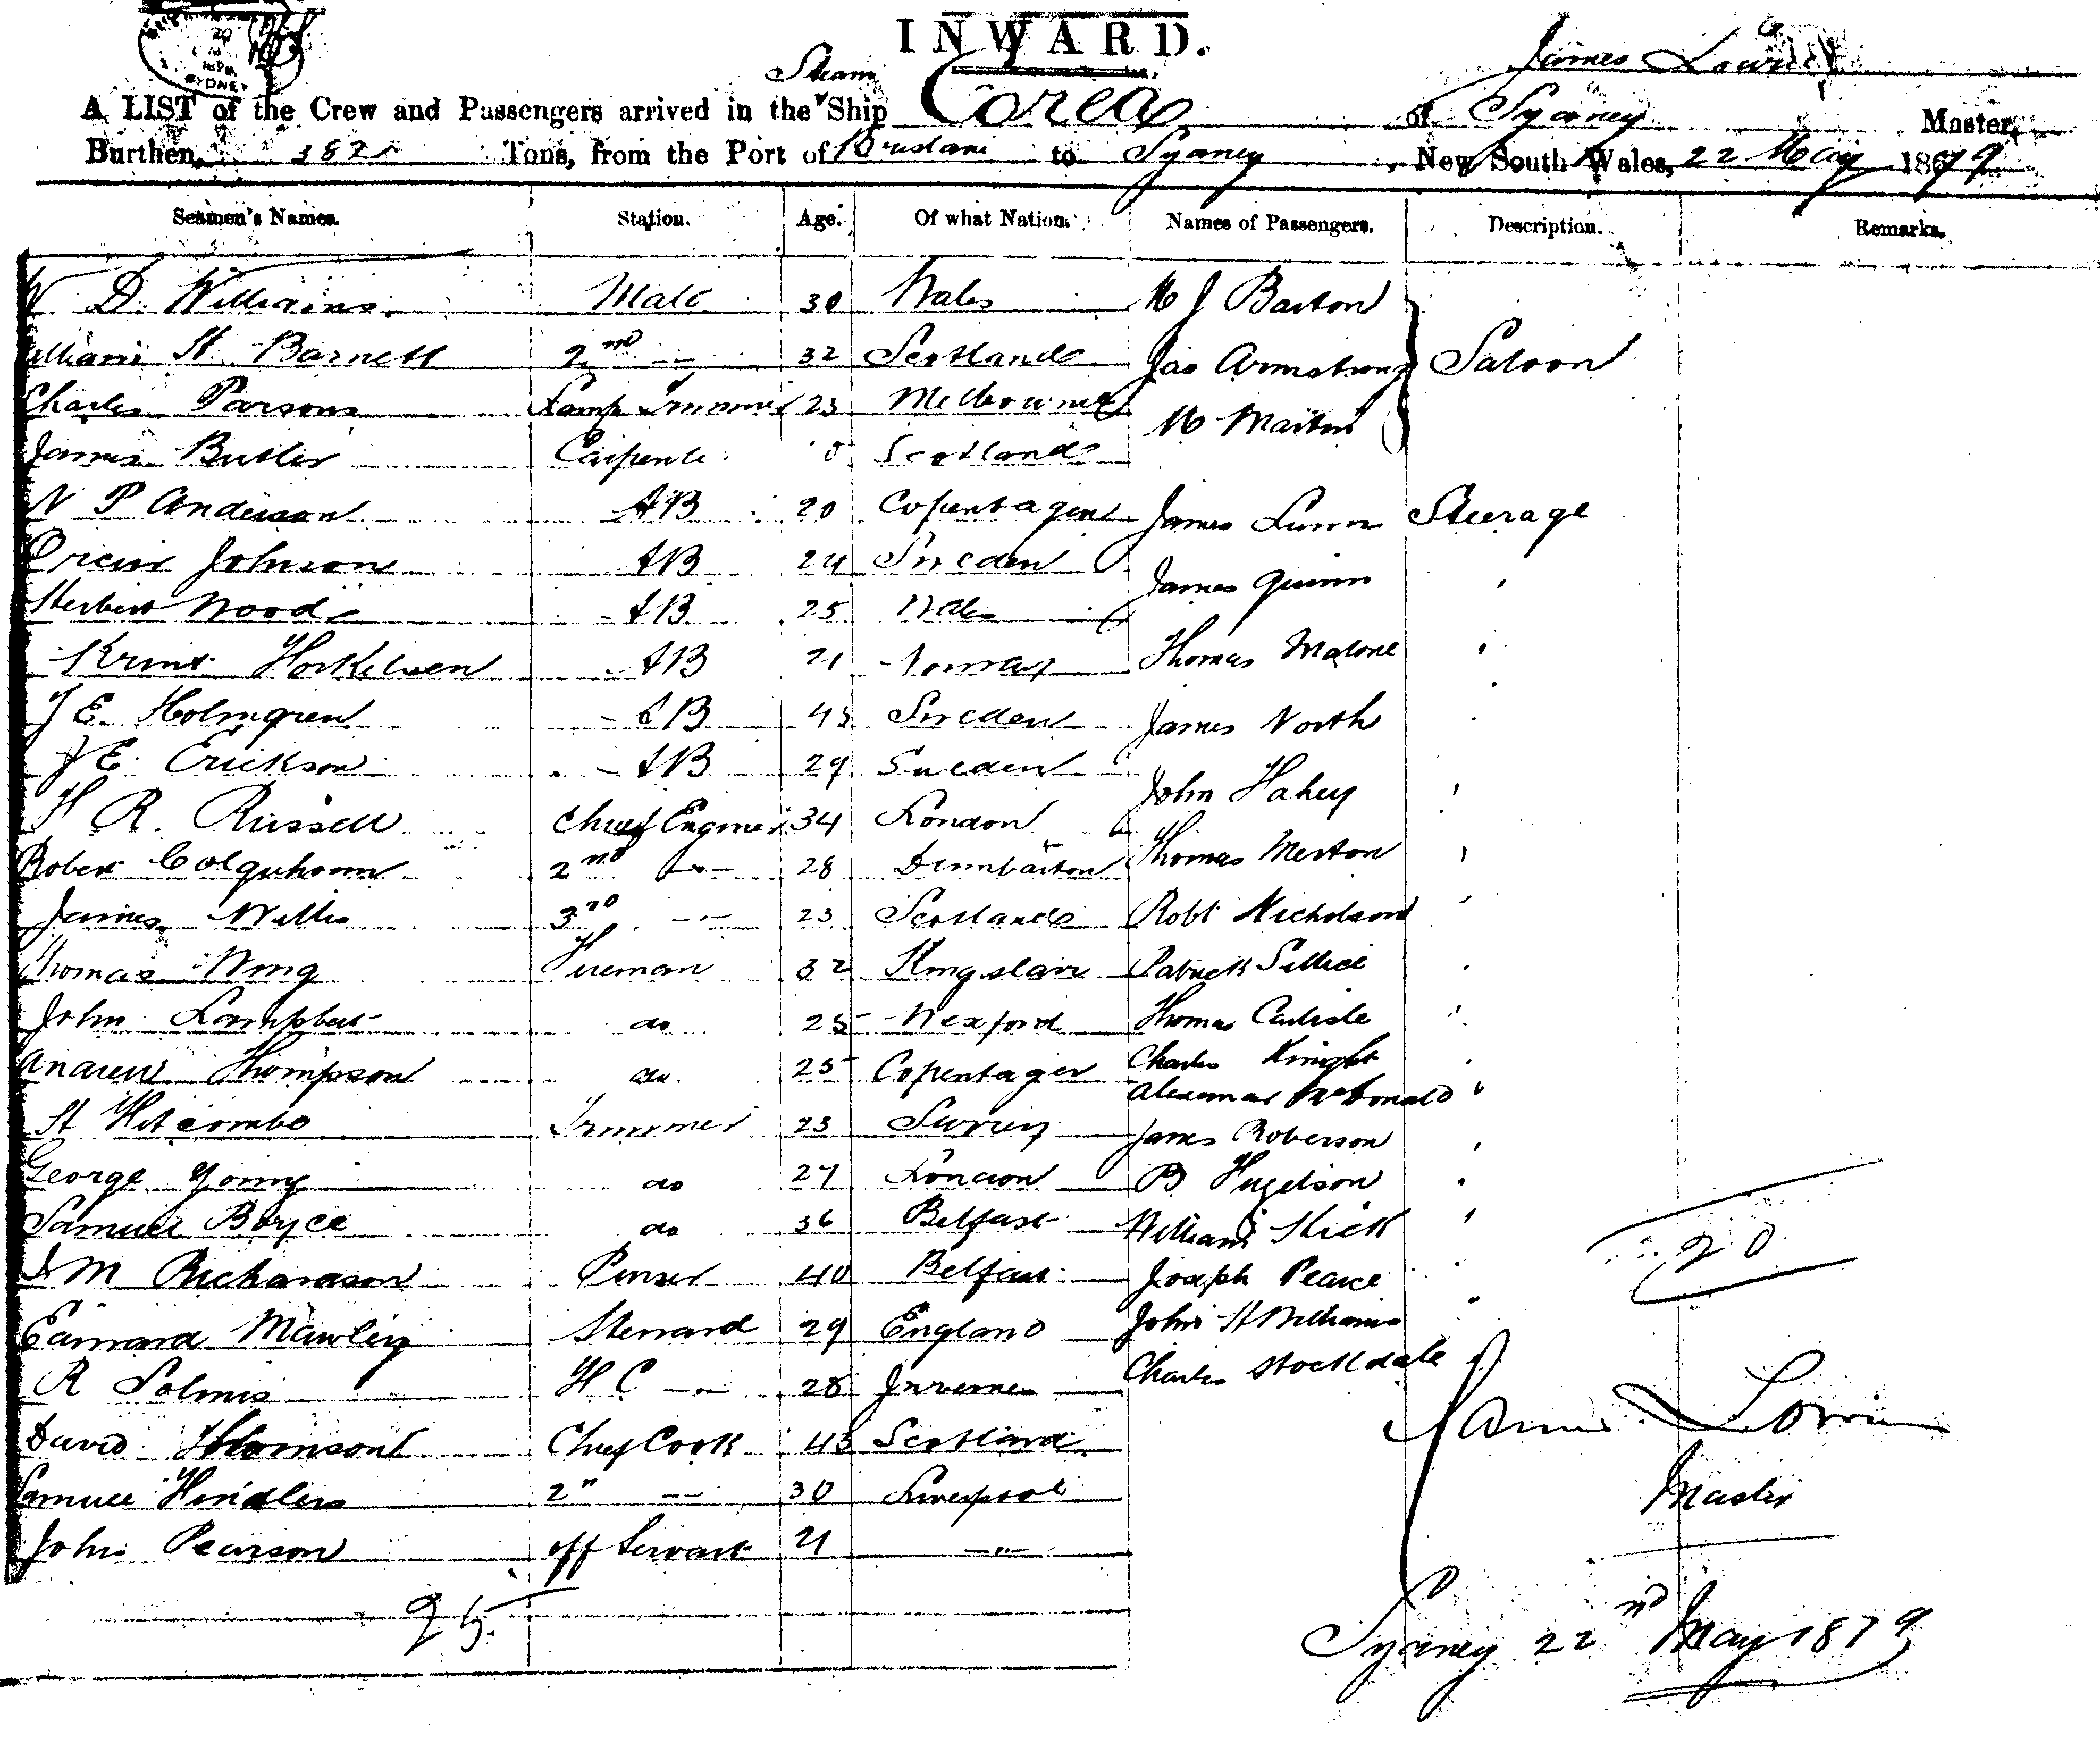 INWARD.
SYDNEY
James Lowrie
Steam
A LIST of the Crew and Passengers arrived in the Ship Corea of Sydney Master,
Burthen, 382 Tons, from the Port of Brisbane to Sydney, New South Wales, 22 May 1879
Seamen's Names. Station. Age. Of what Nation. Names of Passengers. Description. Remarks.
W D. Williams. Mate 30 Wales M J Barton
William H. Barnett 2nd -"- 32 Scotland Jas Armstrong Saloon
Charles Parsons Lamp Trimmer 23 Melbourne M Martin
James Butler Carpenter Scotland
N P Anderson AB 20 Copenhagen James Lunn Steerage
Johnson AB 24 Sweden James Quinn "
Herbert Woods AB 25 Wales
Horkelsen AB 21 Norway Thomas Malone "
J E. Holmgren AB 45 Sweden James North "
J E. Erickson AB 29 Sweden
H R. Russell Chief Engineer 34 London John Fahey "
Robert Colquhoun 2nd -"- 28 Dumbarton Thomas Merton "
James Willis 3rd -"- 23 Scotland Robt Nicholson "
Thomas Wing Fireman 32 Patrick "
John Lampbert do 25 Wexford Thomas Carlisle "
Andrew Thompson do 25 Copenhagen Charles Knight "
Alexander McDonald "
H Witcombe Trimmer 23 Surrey James Roberson "
George Young do 27 London B "
Samuel Boyce do 36 Belfast William "
Richardson Purser 40 Belfast Joseph Pearce "
Edward Mawley Steward 29 England John H Williams "
R Solmis F C -"- 28 Inverness Charles Stockdale
David Thomson Chief Cook 43 Scotland
Samuel Hindless 2" -"- 30 Liverpool
John Pearson off Servant 21 -"-
25
20
James Lowrie
Master
Sydney 22nd May 1879